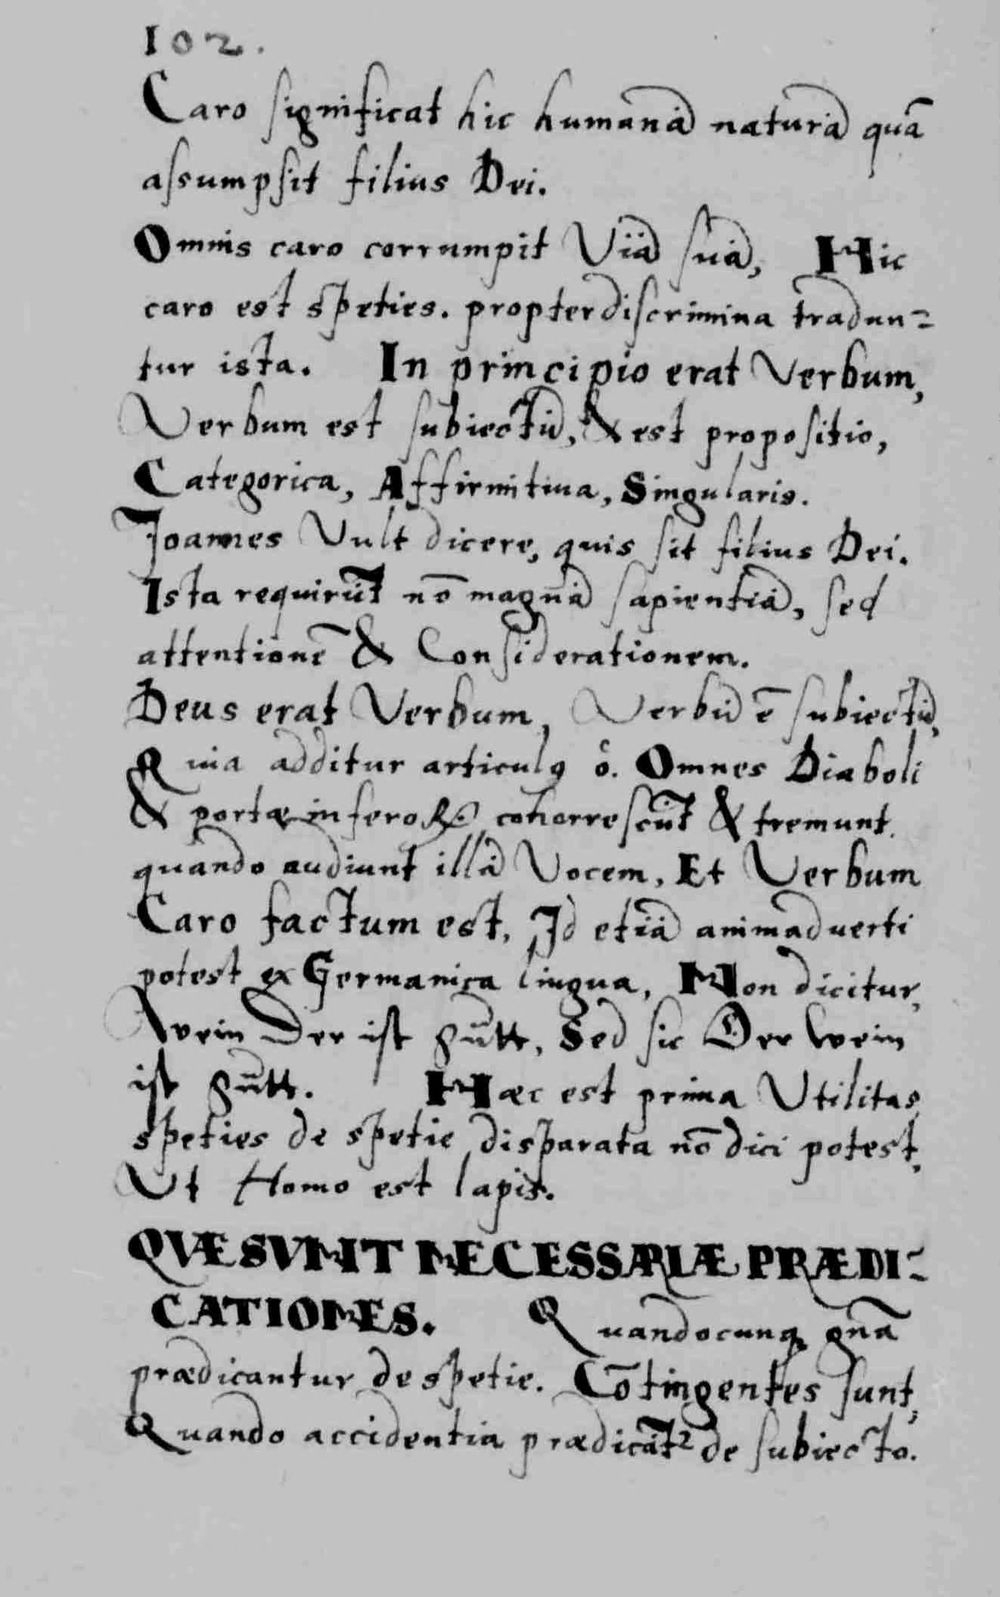 102.
Caro significat hic humanā naturā quā
assumpsit filius Dei.
Omnis caro corrumpit Viā suā, Hic
caro est speties. propter discrimina tradun=
tur ista. In principio erat Verbum,
Verbum est subiectū, & est propositio,
Categorica, Affirmitiua, Singularis.
Joannes Vult dicere, quis sit filius Dei.
Ista requirūt nō magnā sapientiā, sed
attentionē & Considerationem.
Deus erat Verbum, Verbū ē subiectū,
Quia additur articulꝰ ὁ. Omnes Diaboli
& portæ inferoꝝ cohorrescūt & tremunt.
quando audiunt illā Vocem, Et Verbum
Caro factum est. Id etiā animaduerti
potest ex Germanica lingua, Non dicitur,
Wein Der ist gūtt, Sed sic Der Wein
ist gūtt. Hæc est prima Utilitas
speties de spetie disparata nō dici potest,
Ut Homo est lapis.
QVÆ SVNT NECESSARIÆ PRÆDI=
CATIONES. Quandocunq gnā
prædicantur de spetie. Cōtingentes sunt,
Quando accidentia prædicāt² de subiecto.